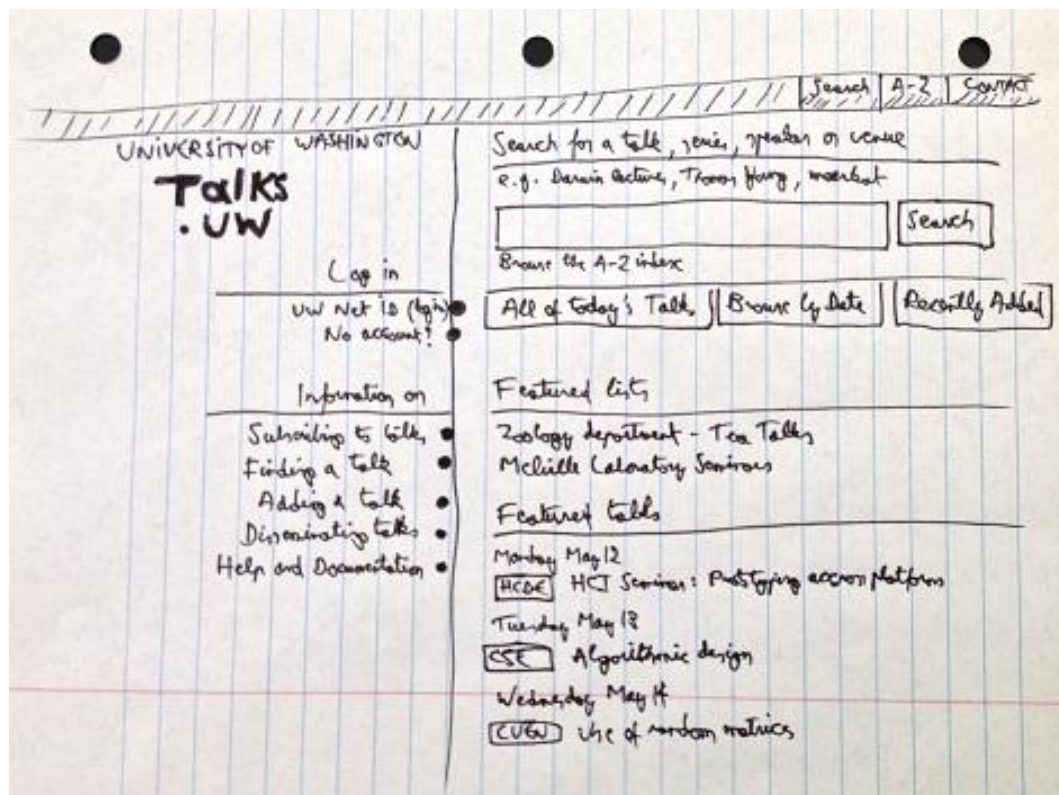 Search A-Z CONTACT
UNIVERSITY OF WASHINGTON
Talks
.UW
Log in
UW Net ID (login)
No account?
Information on
Subscribing to talks
Finding a talk
Adding a talk
Disseminating talks
Help and Documentation
Search for a talk, series, speaker or venue
e.g. Darwin lectures, Thomas Young,
Search
Browse the A-Z index
All of today's Talks Browse by Date Recently Added
Featured lists
Zoology department - Tea Talks
Melville Laboratory Seminars
Featured talks
Monday May 12
HCDE HCI Seminar: Prototyping across platforms
Tuesday May 13
CSE Algorithmic design
Wednesday May 14
Use of random matrices